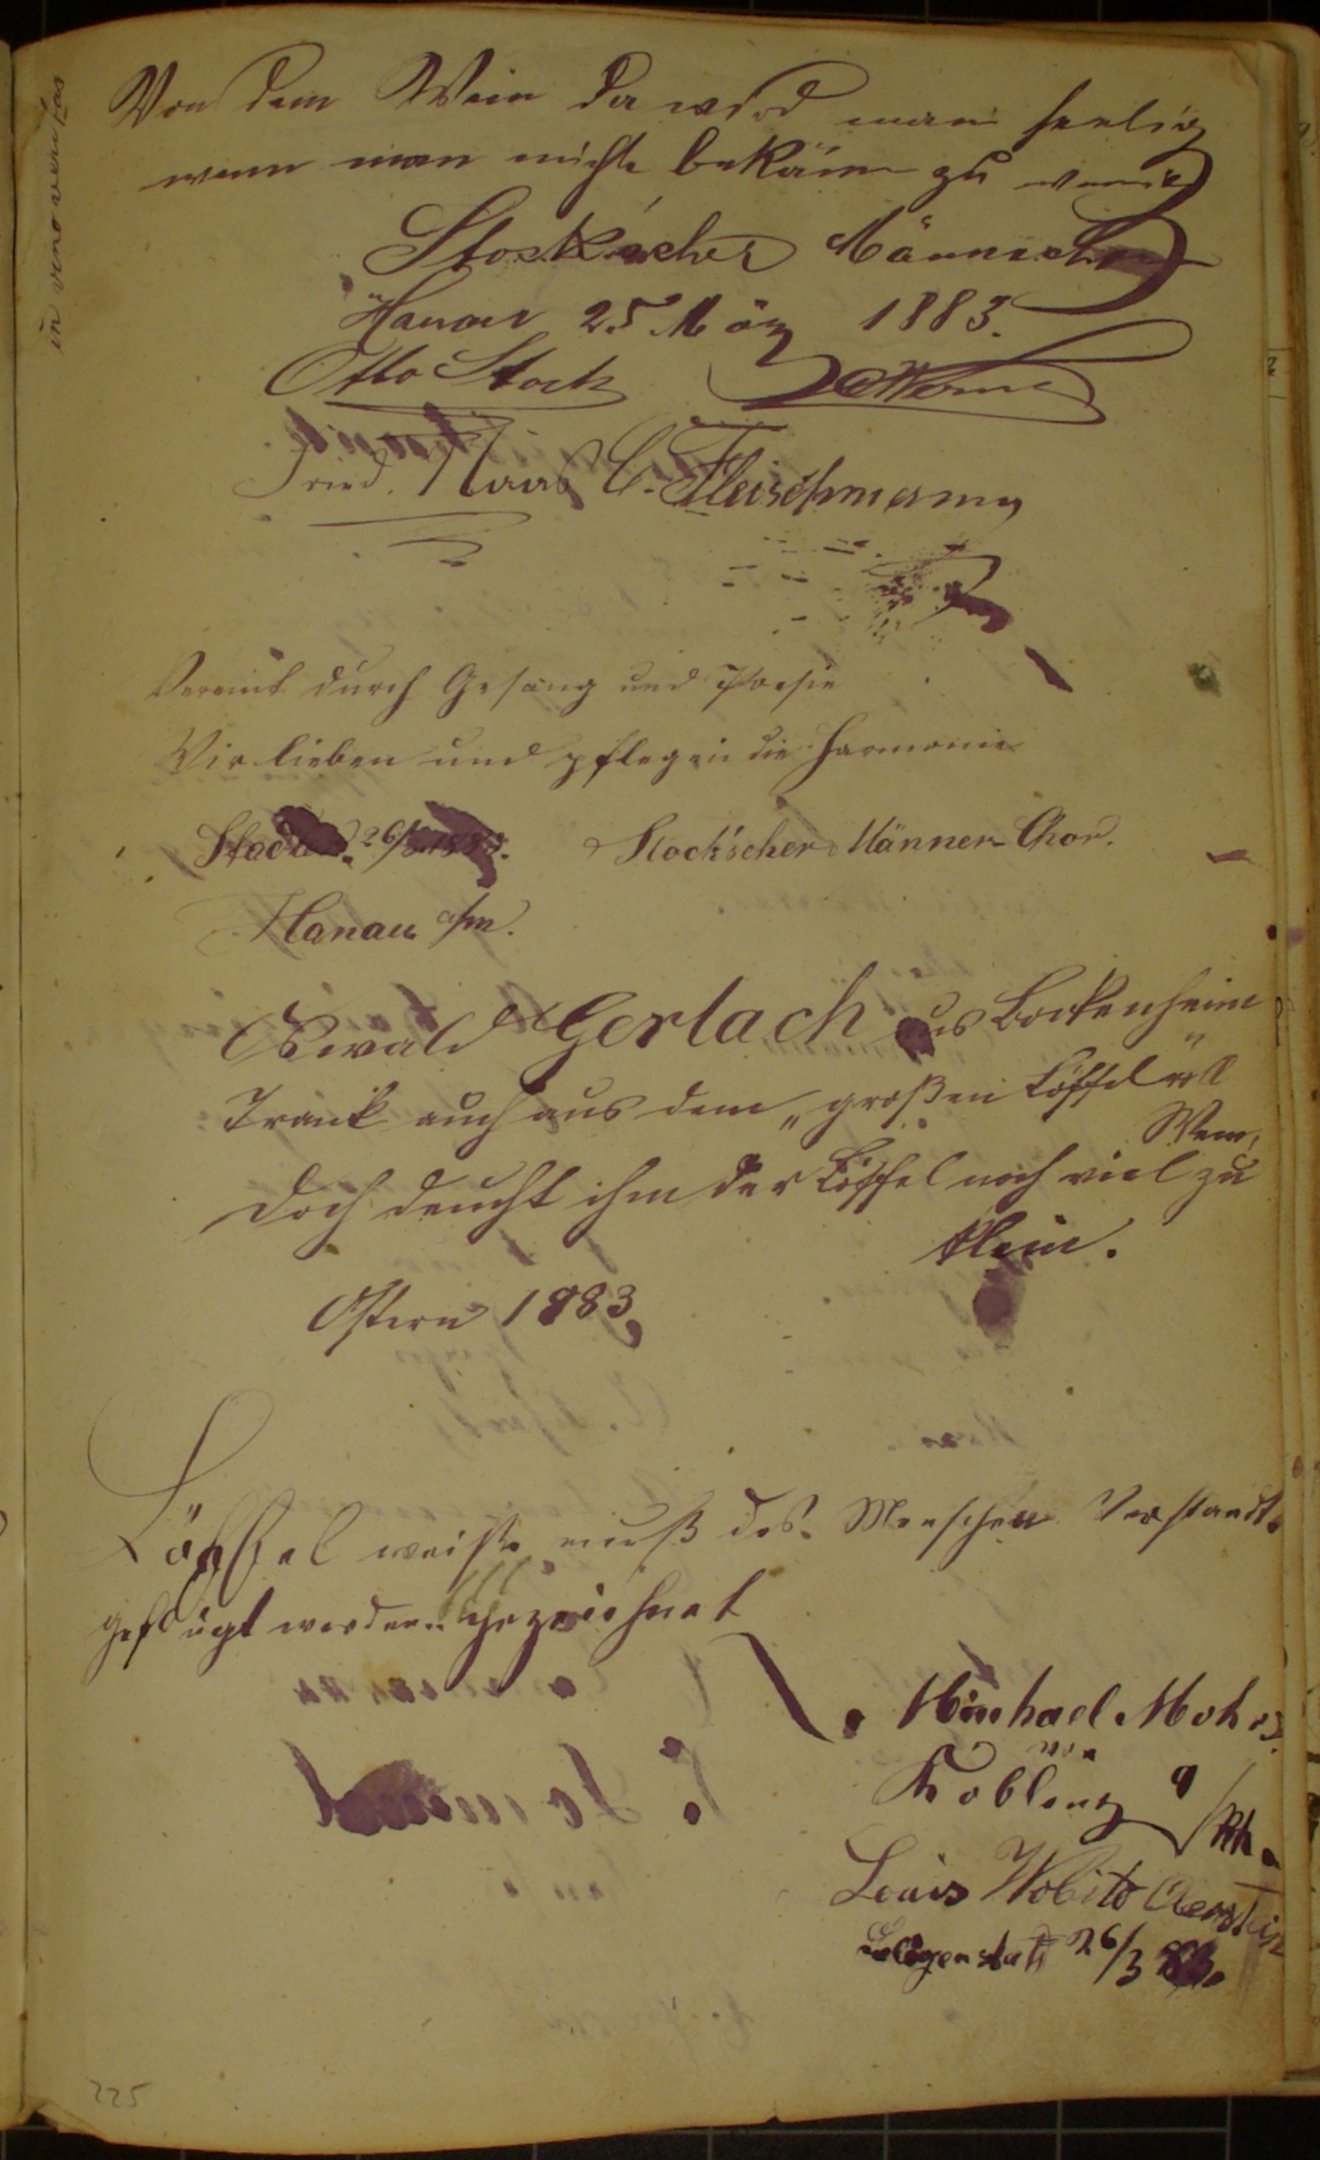 in vino veritas
Von dem Wein da wird man seelig
wenn man nicht bekäm zu wenig
Stock'scher Männerchor
Hanau 25 März 1883.
Otto Stock
Fried. Haas C. Fleischmann
Vereint durch Gesang und Poesie
Wir lieben und pflegen die Harmonie
26/3 1883. Stock'scher Männer-Chor.
Hanau a/m.
Oswald Gerlach aus Bockenheim
Trank auch aus dem „großen Löffel" voll
Wein,
Doch deucht ihm der Löffel noch viel zu
klein.
Ostern 1883.
Löffel weise muß des Menschen Verstandt
werden. gezeichnet
Michael Mohr
von
Koblenz a/Rh.
Louis
Seligenstatt 26/3 83.
225